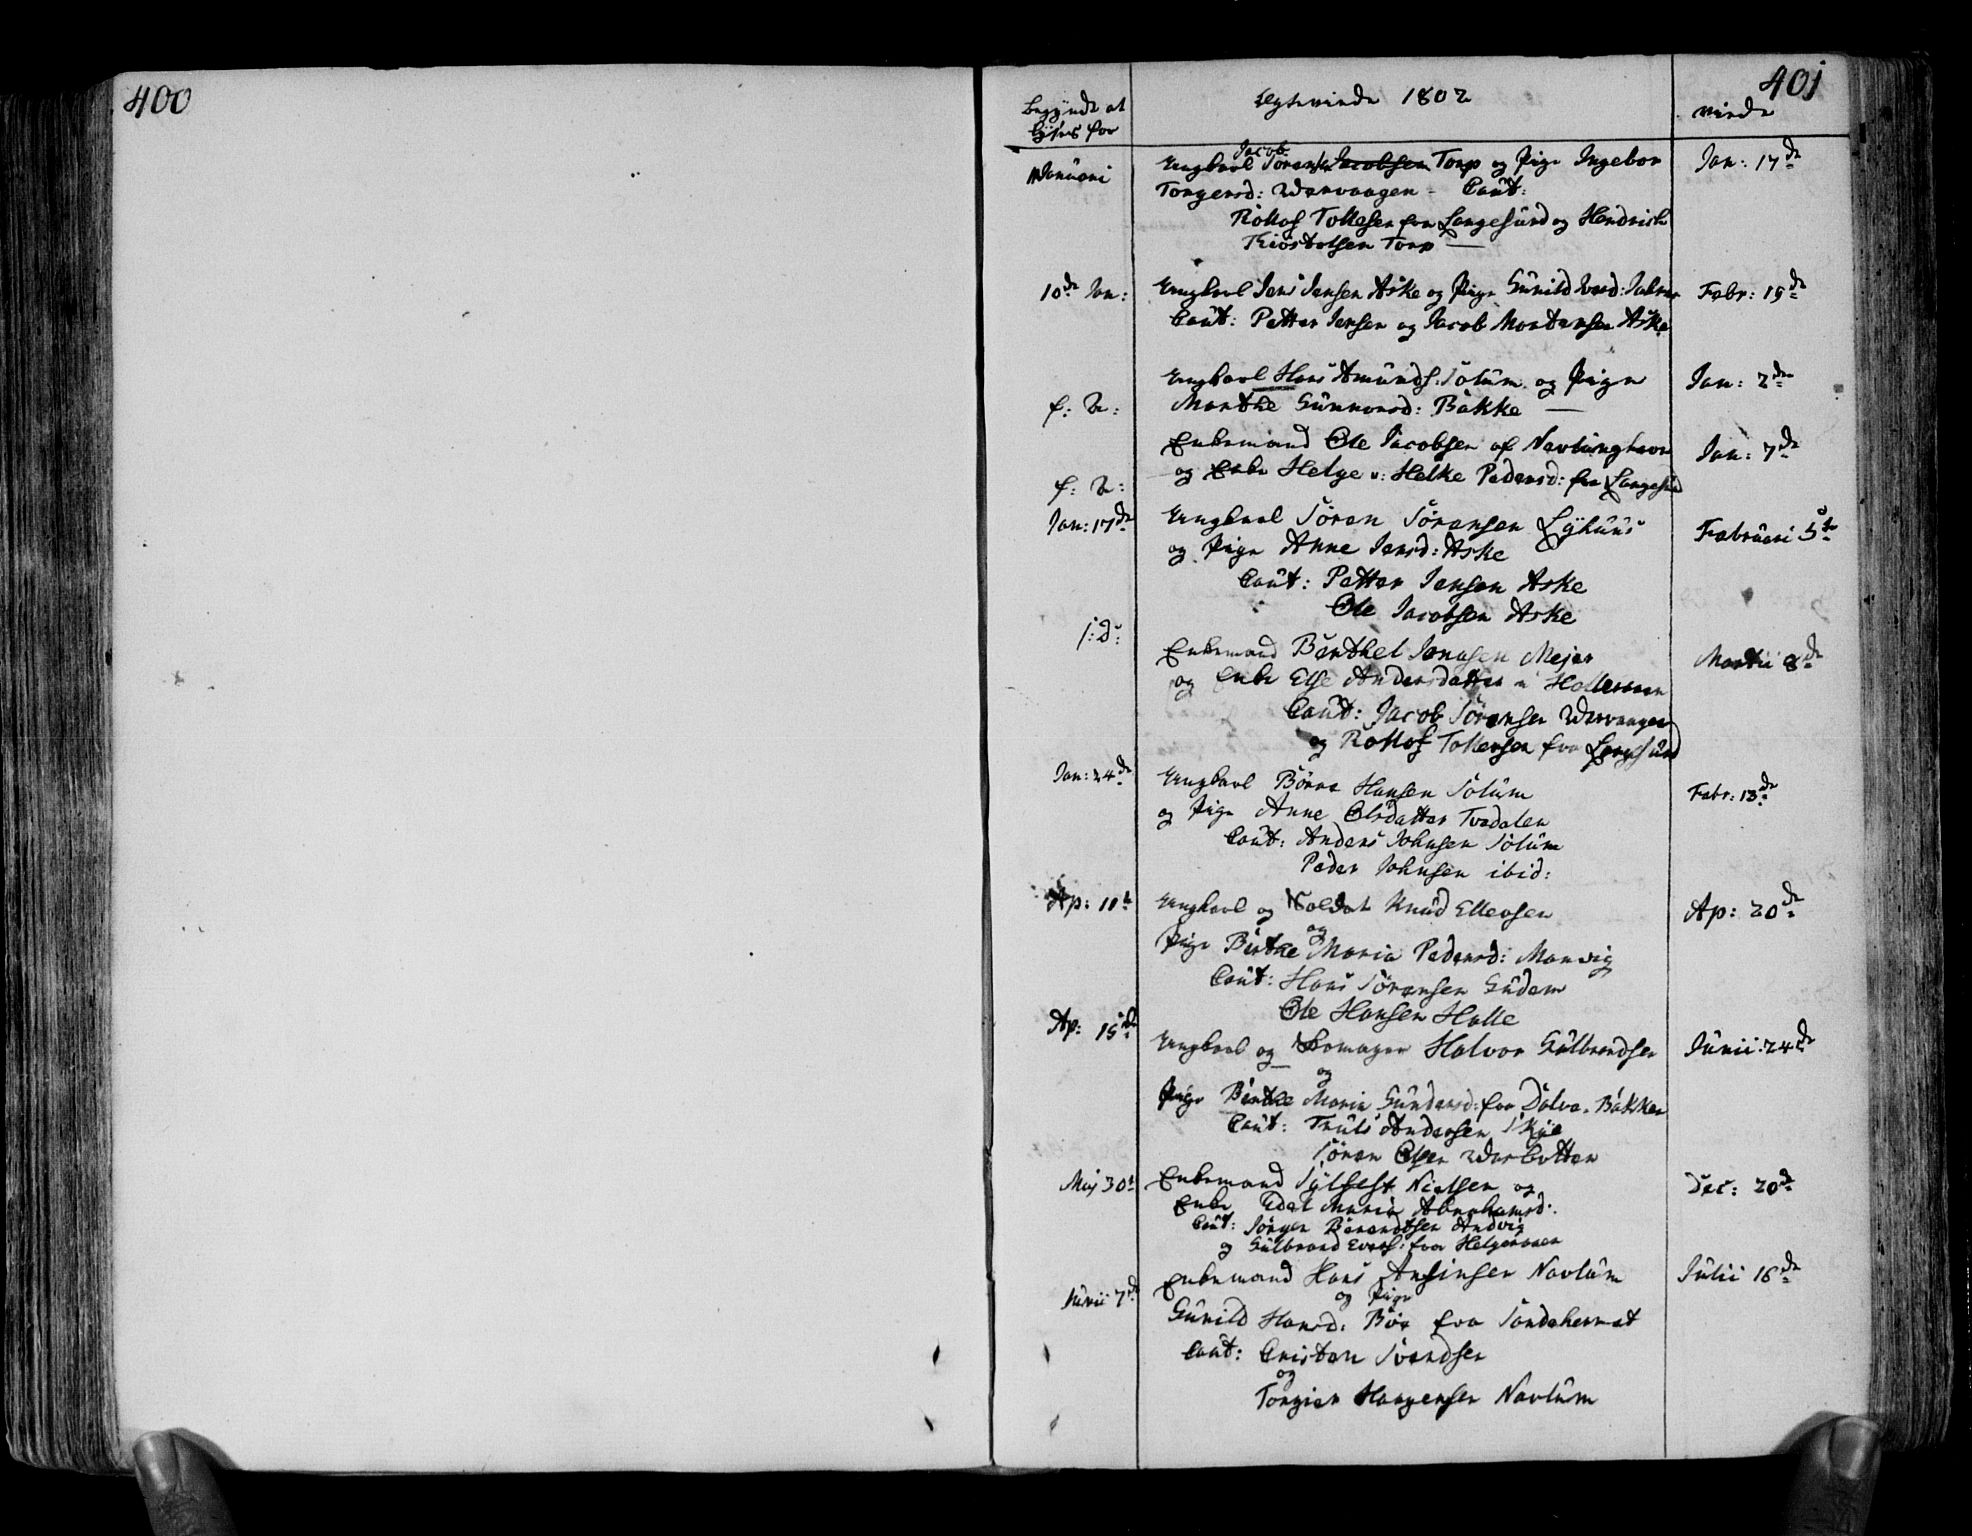 400
401
begyndt at
lyses for
Egteviede 1802
viede
Januari
Jacob
Ungkarl Sörens: Jacobsen Torp og Pige Ingebor
Jan: 17de
Torgersd: Warvaagen - Caut:
Rollof Tollefsen fra Langesund og Hendrich
Kiöstolsen Torp
10de Jan:
Ungkarl Jens Jensen Aske og Pige Gunild
Febr: 19de
Caut: Petter Jensen og Jacob Mortensen Aske
Ungkarl Hans Amunds: Solum og Pige
Jan: 2de
f: a:
Marthe Gunnersd: Bakke
Enkemand Ole Jacobsen af Nevlunghavn
Jan: 7de
f: a:
og Enke Helge v: Helke Pedersd: fra Langesund
Jan: 17de
Ungkarl Sören Sörensen Lyhuus
Februari 5te
og Pige Anne Jensd: Aske
Caut: Petter Jensen Aske
Ole Jacobsen Aske
j: d:
Enkemand Berthel Jonasen Mejer
Martii 8de
og Enke Else Andersdatter i
Caut: Jacob Sörensen Warvaagen
og Rollof Tollevsen fra Langesund
Jan: 24de
Ungkarl Börre Hansen Solum
Febr: 13de
og Pige Anne Olsdatter Tvedalen
Caut: Anders Johnsen Solum
Peder Johnsen ibid:
Ap: 11te
Ungkarl og Soldat Knud Ellevsen
Ap: 20de
og
Pige Birthe Maria Pedersd: Manvig
Caut: Hans Sörensen Gudem
Ole Hansen Halle
Ap: 15de
Ungkarl og Skomager Halvor Gulbrandsen
Junii: 24de
og
Pige Birthe Maria Gundersd: fra Dolva. Bakken
Caut: Truls Andersen Skye
Sören Olsen
Maj 30te
Enkemand Sylfest Nielsen og
Dec: 20de
Enke Edel Maria Abrahamsd:
Caut: Jörgen Berendtsen Andvig
og Gulbrand Evers: fra Helgeroaen
Junii 7de
Enkemand Hans Ansinsen Navlum
Julii 16de
og Pige
Gunild Hansd: Böe fra Sandeherret
Caut: Cristen Svendsen
og
Torgier Hansensen Navlum